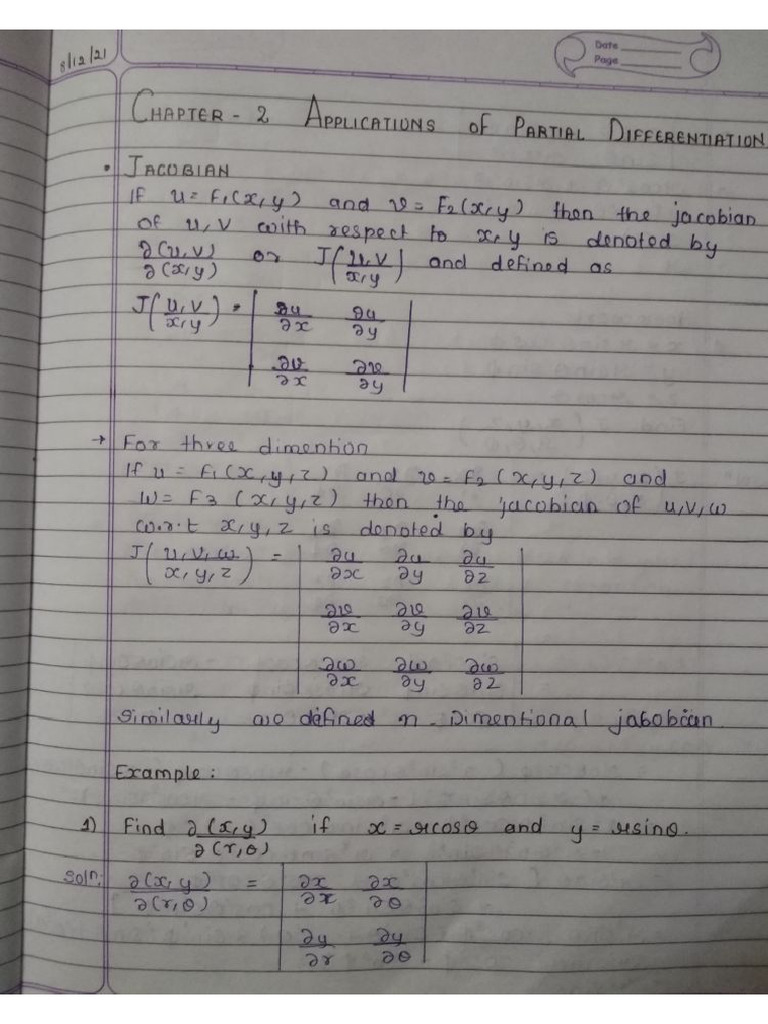 8/12/21
Date
Page
CHAPTER - 2 APPLICATIONS of PARTIAL DIFFERENTIATION
• JACOBIAN
If u = F1(x,y) and v = F2(x,y) then the jacobian
of u,v with respect to x,y is denoted by
∂(u,v)/∂(x,y) or J(u,v/x,y) and defined as
J(u,v/x,y) = | ∂u/∂x ∂u/∂y |
| ∂v/∂x ∂v/∂y |
→ For three dimention
If u = F1(x,y,z) and v = F2(x,y,z) and
w = F3(x,y,z) then the jacobian of u,v,w
w.r.t x,y,z is denoted by
J(u,v,w/x,y,z) = | ∂u/∂x ∂u/∂y ∂u/∂z |
| ∂v/∂x ∂v/∂y ∂v/∂z |
| ∂w/∂x ∂w/∂y ∂w/∂z |
Similarly we defined n-Dimentional jabobian
Example:
1) Find ∂(x,y)/∂(r,θ) if x = rcosθ and y = rsinθ.
Soln: ∂(x,y)/∂(r,θ) = | ∂x/∂x ∂x/∂θ |
| ∂y/∂r ∂y/∂θ |